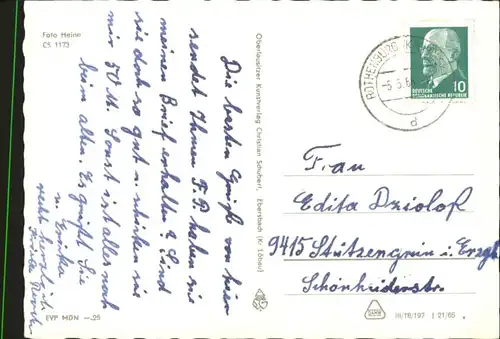 Foto Heine
CS 1173
Die besten Grüße von hier
sendet Ihnen F. P. haben sie
meinen Brief erhalten? Sind
sie doch so gut u. schicken sie
mir 50 M. Sonst ist alles noch
beim alten. Es grüßt Sie
recht herzlich
u. Erika
EVP MDN —.25
Oberlausitzer Kunstverlag Christian Schubert, Ebersbach (Kr. Löbau)
ROTHENBURG
d
DEUTSCHE
DEMOKRATISCHE REPUBLIK
10
Frau
Edita Dziolok
9415 Stützengrün i. Erzgb
Schönheiderstr.
III/18/197 J 21/65